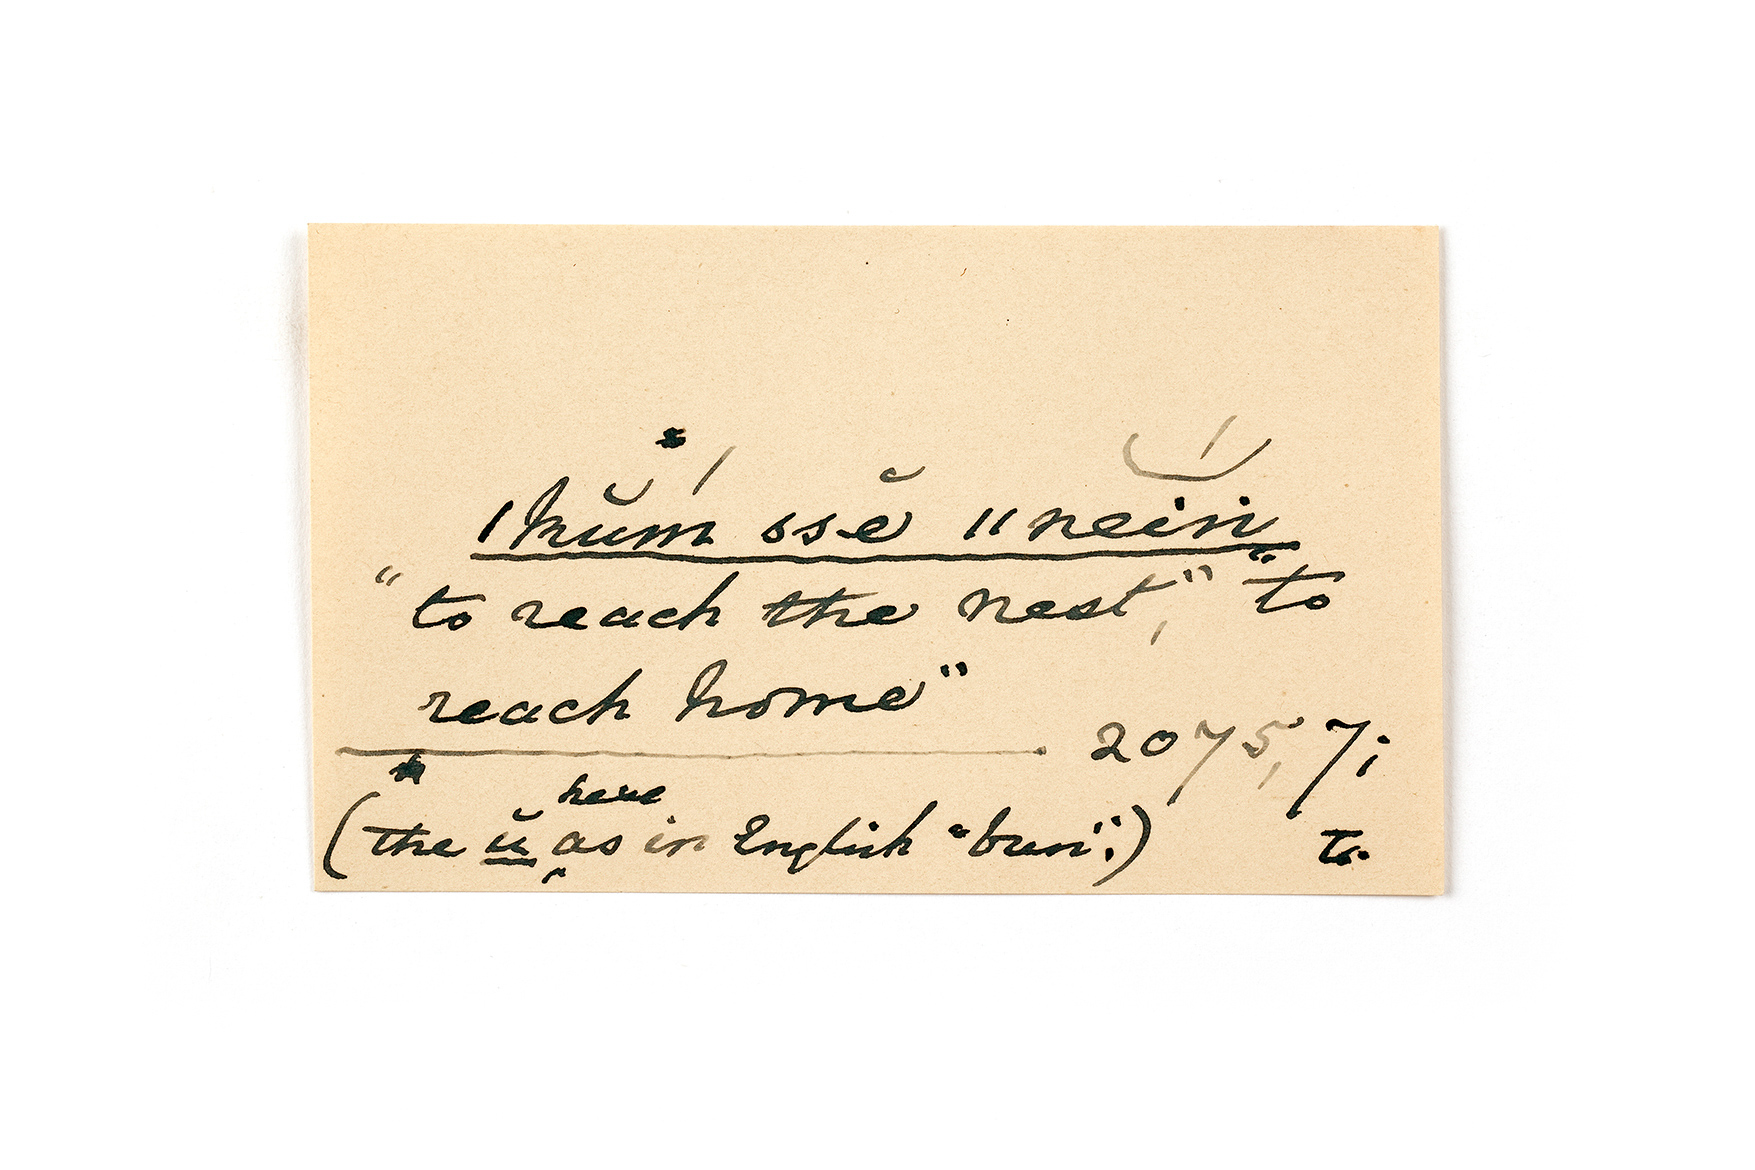 ǀkŭḿ ssĕ ǁnein
“to reach the nest,” “to
reach home”
2075, 7;
(the ŭ here as in English “bun”:)
tr.